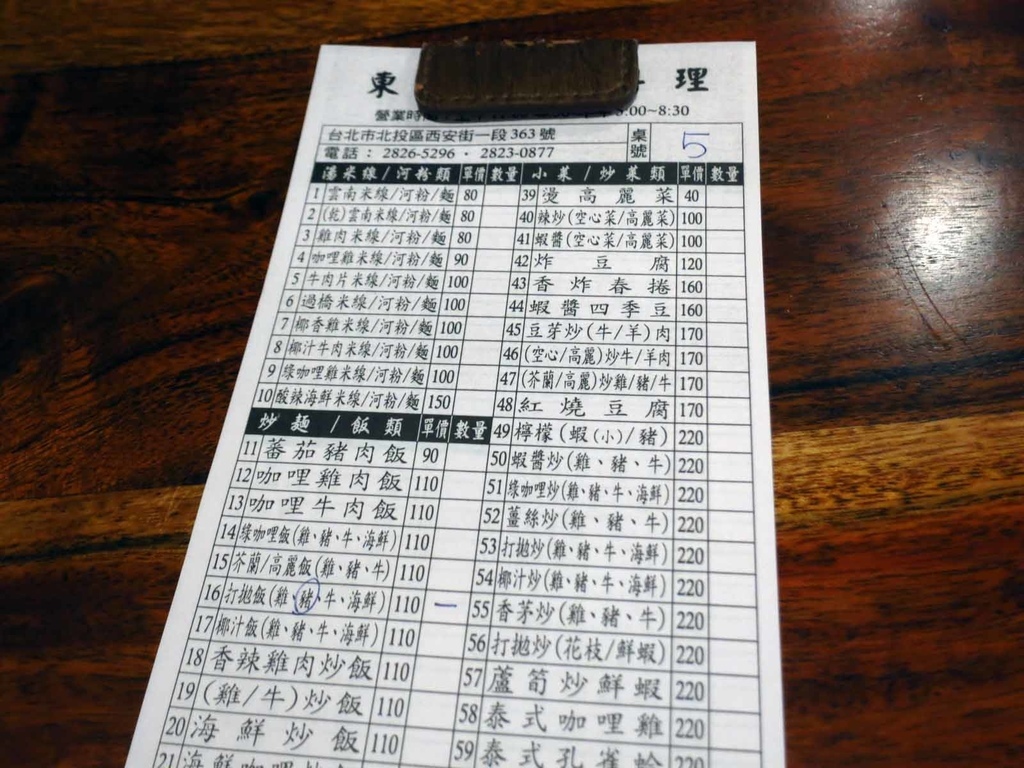 東 理
營業時 :00~8:30
台北市北投區西安街一段363號
電話：2826-5296・2823-0877
桌號 5
湯米線/河粉類 單價 數量
1 雲南米線/河粉/麵 80
2 (乾)雲南米線/河粉/麵 80
3 雞肉米線/河粉/麵 80
4 咖哩雞米線/河粉/麵 90
5 牛肉片米線/河粉/麵 100
6 過橋米線/河粉/麵 100
7 椰香雞米線/河粉/麵 100
8 椰汁牛肉米線/河粉/麵 100
9 綠咖哩雞米線/河粉/麵 100
10 酸辣海鮮米線/河粉/麵 150
炒麵/飯類 單價 數量
11 蕃茄豬肉飯 90
12 咖哩雞肉飯 110
13 咖哩牛肉飯 110
14 綠咖哩飯(雞、豬、牛、海鮮) 110
15 芥蘭/高麗飯(雞、豬、牛) 110
16 打拋飯(雞、豬、牛、海鮮) 110 一
17 椰汁飯(雞、豬、牛、海鮮) 110
18 香辣雞肉炒飯 110
19 (雞/牛)炒飯 110
20 海鮮炒飯 110
21 海鮮咖哩飯
小菜/炒菜類 單價 數量
39 燙高麗菜 40
40 辣炒(空心菜/高麗菜) 100
41 蝦醬(空心菜/高麗菜) 100
42 炸豆腐 120
43 香炸春捲 160
44 蝦醬四季豆 160
45 豆芽炒(牛/羊)肉 170
46 (空心/高麗)炒牛/羊肉 170
47 (芥蘭/高麗)炒雞/豬/牛 170
48 紅燒豆腐 170
49 檸檬(蝦(小)/豬) 220
50 蝦醬炒(雞、豬、牛) 220
51 綠咖哩炒(雞、豬、牛、海鮮) 220
52 薑絲炒(雞、豬、牛) 220
53 打拋炒(雞、豬、牛、海鮮) 220
54 椰汁炒(雞、豬、牛、海鮮) 220
55 香茅炒(雞、豬、牛) 220
56 打拋炒(花枝/鮮蝦) 220
57 蘆筍炒鮮蝦 220
58 泰式咖哩雞 220
59 泰式孔雀蛤 220